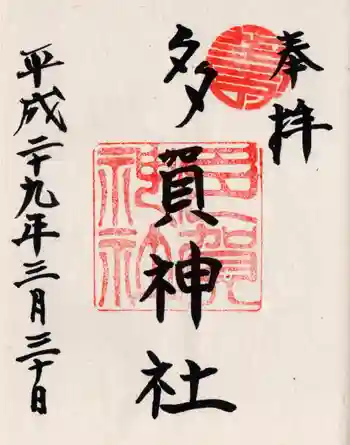 奉拝
多賀神社
平成二十九年三月三十日